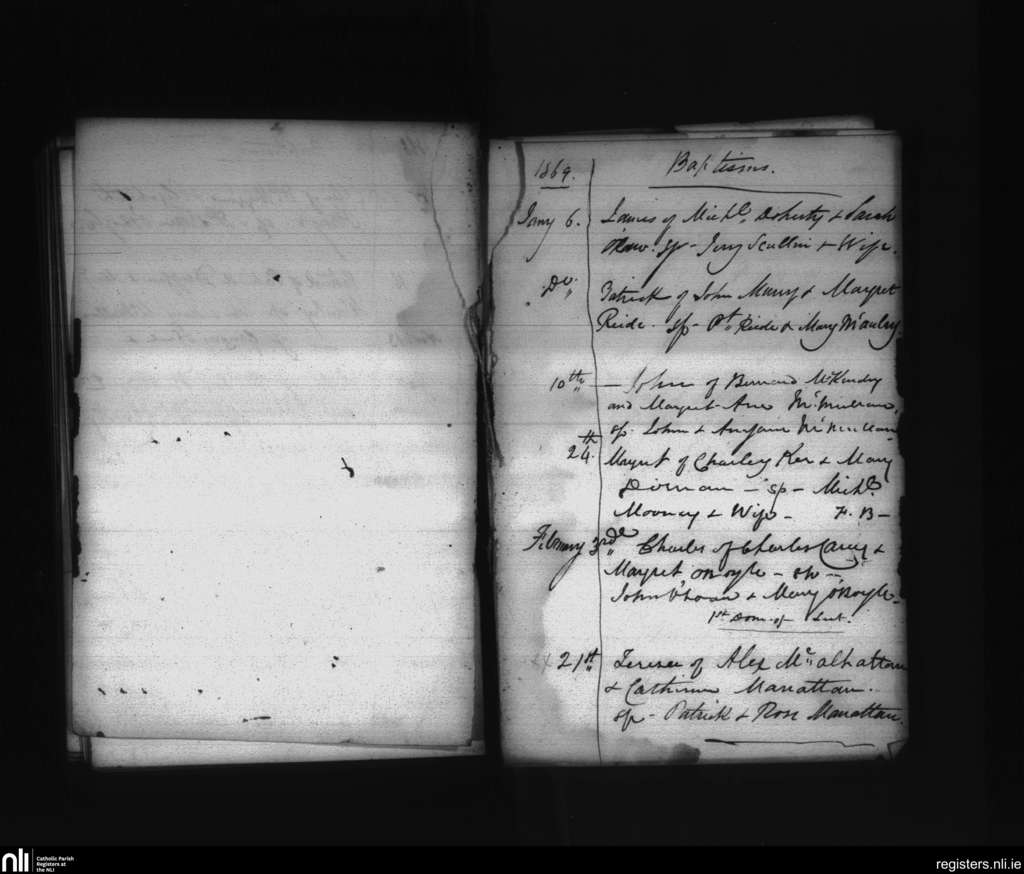 1869. Baptisms.
Jany 6. James of Michl. Doherty & Sarah
sp - Jerry Scullin & Wife.
Do. Patrick of John Murry & Margret
Reide. sp - Pt. Reide & Mary McAuley
10th John of Bernard McKendry
and Margret Ann McMullan,
sp. John & Annjane McMullan
24th. Margret of Charley Ker & Mary
Dornan - sp - Michl.
Mooney & Wife - F. B -
February 3rd Charles of Charles &
Margret O'Boyle - sp -
John & Mary O'Boyle -
1st Dom. of Lent.
21st of Alex
& Catherine Manattan.
sp - Patrick & Rose Manattan.
nli
Catholic Parish
Registers at
the NLI
registers.nli.ie